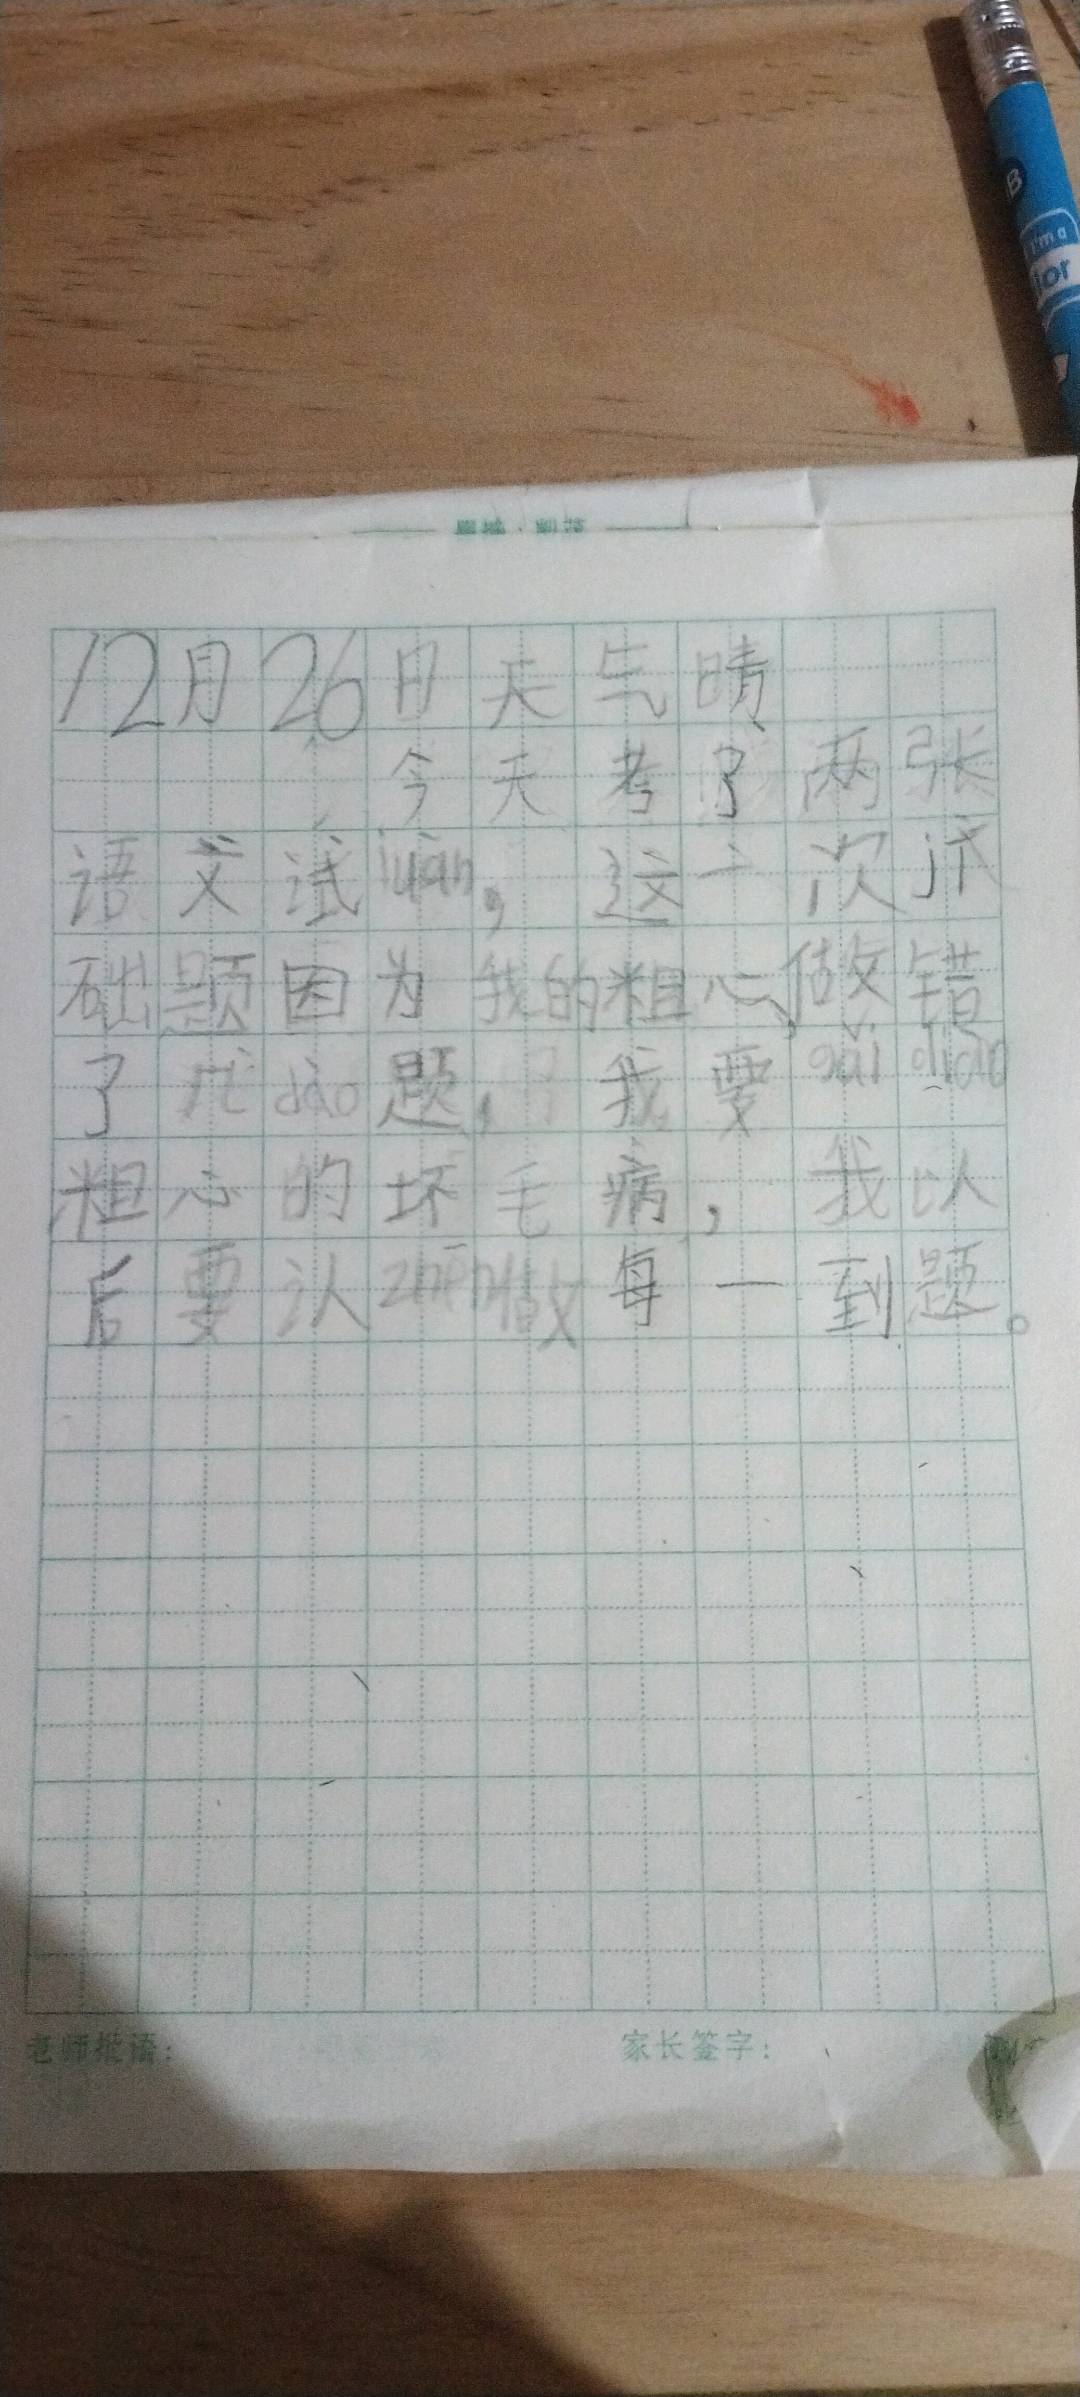 B
I'm a
ior
12月26日天气晴
今天考了两张
语文试juàn，这一次
础题因为我的粗心，做错
了几dào题，我要gǎi diào
粗心的坏毛病，我以
后要认zhēn做每一到题。
老师批语：
家长签字：